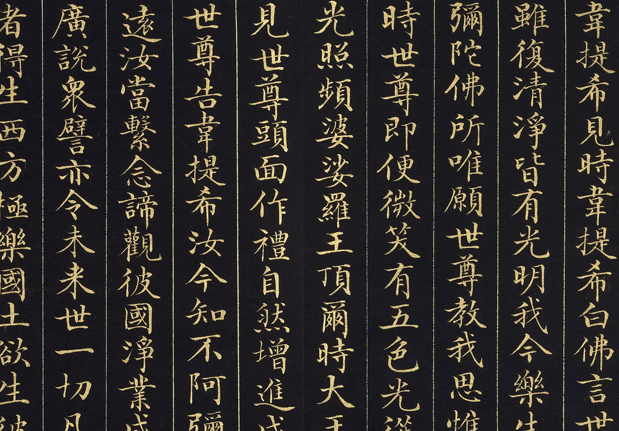 韋提希見時韋提希白佛言世
雖復清淨皆有光明我今樂生
彌陀佛所唯願世尊教我思惟
時世尊即便微笑有五色光從
光照頻婆娑羅王頂爾時大王
見世尊頭面作禮自然增進成
世尊告韋提希汝今知不阿彌
遠汝當繫念諦觀彼國淨業成
廣說衆譬亦令未来世一切凡
者得生西方極樂國土欲生彼